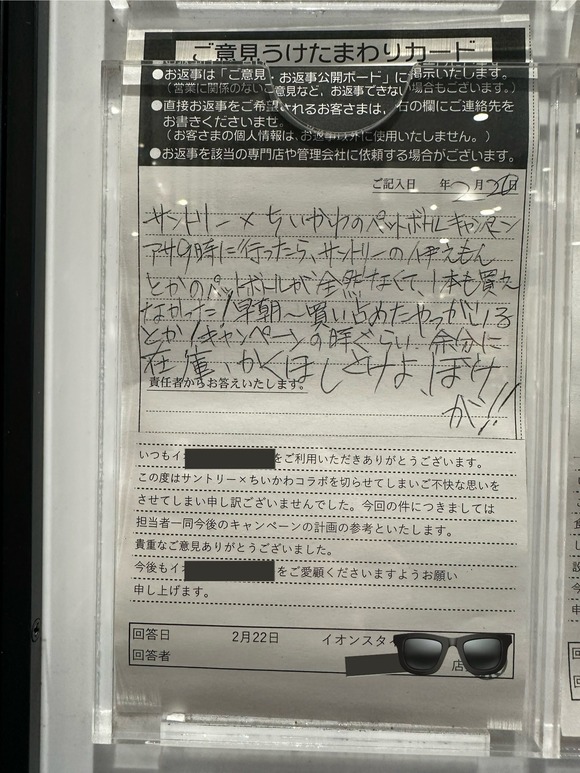 ご意見うけたまわりカード
●お返事は「ご意見・お返事公開ボード」に掲示いたします。
（営業に関係のないご意見など、お返事できない場合もございます。）
●直接お返事をご希望されるお客さまは、右の欄にご連絡先を
お書きくださいませ。
（お客さまの個人情報は、お返事以外に使用いたしません。）
●お返事を該当の専門店や管理会社に依頼する場合がございます。
ご記入日 年 2月20日
サントリー×ちいかわのペットボトルキャンペーン
アサ9時に行ったら、サントリーの伊えもん
とかのペットボトルが全然なくて、1本も買え
なかった!早朝〜買い占めたやつがいる
とか!キャンペーンの時ぐらい、余分に
在庫、かくほしとけよ、ぼけ
が!!
責任者からお答えいたします。
いつもイオ をご利用いただきありがとうございます。
この度はサントリー×ちいかわコラボを切らせてしまいご不快な思いを
させてしまい申し訳ございませんでした。今回の件につきましては
担当者一同今後のキャンペーンの計画の参考といたします。
貴重なご意見ありがとうございました。
今後もイ をご愛顧くださいますようお願い
申し上げます。
回答日 2月22日 イオンスタイ
回答者 店